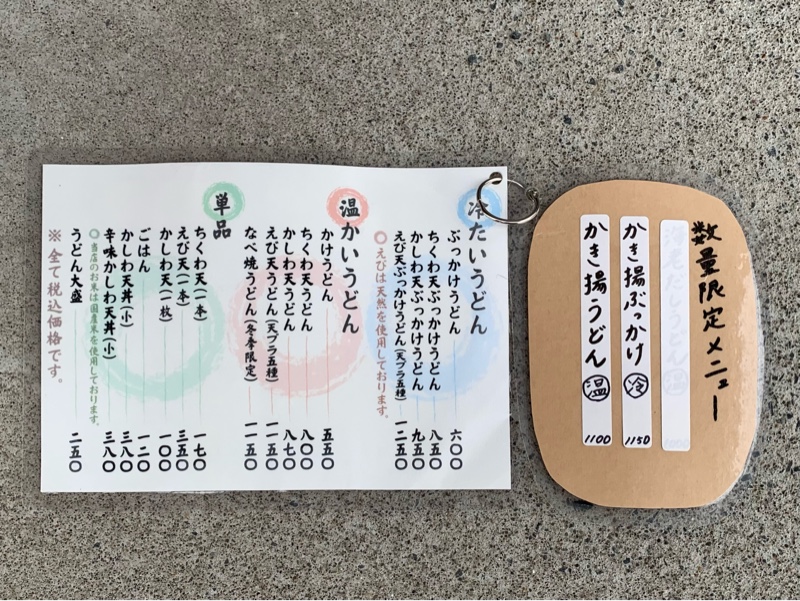 冷たいうどん
ぶっかけうどん 六〇〇
ちくわ天ぶっかけうどん 八五〇
かしわ天ぶっかけうどん 九五〇
えび天ぶっかけうどん(天プラ五種) 一二五〇
○えびは天然を使用しております。
温かいうどん
かけうどん 五五〇
ちくわ天うどん 八〇〇
かしわ天うどん 八七〇
えび天うどん(天プラ五種) 一一五〇
なべ焼うどん(冬季限定) 一一五〇
単品
ちくわ天(一本) 一七〇
えび天(一本) 三五〇
かしわ天(一枚) 一〇〇
ごはん 一二〇
かしわ天丼(小) 三八〇
辛味かしわ天丼(小) 三八〇
○当店のお米は国産米を使用しております。
うどん大盛 二五〇
※全て税込価格です。
数量限定メニュー
だしうどん 温
かき揚ぶっかけ 冷 1150
かき揚うどん 温 1100